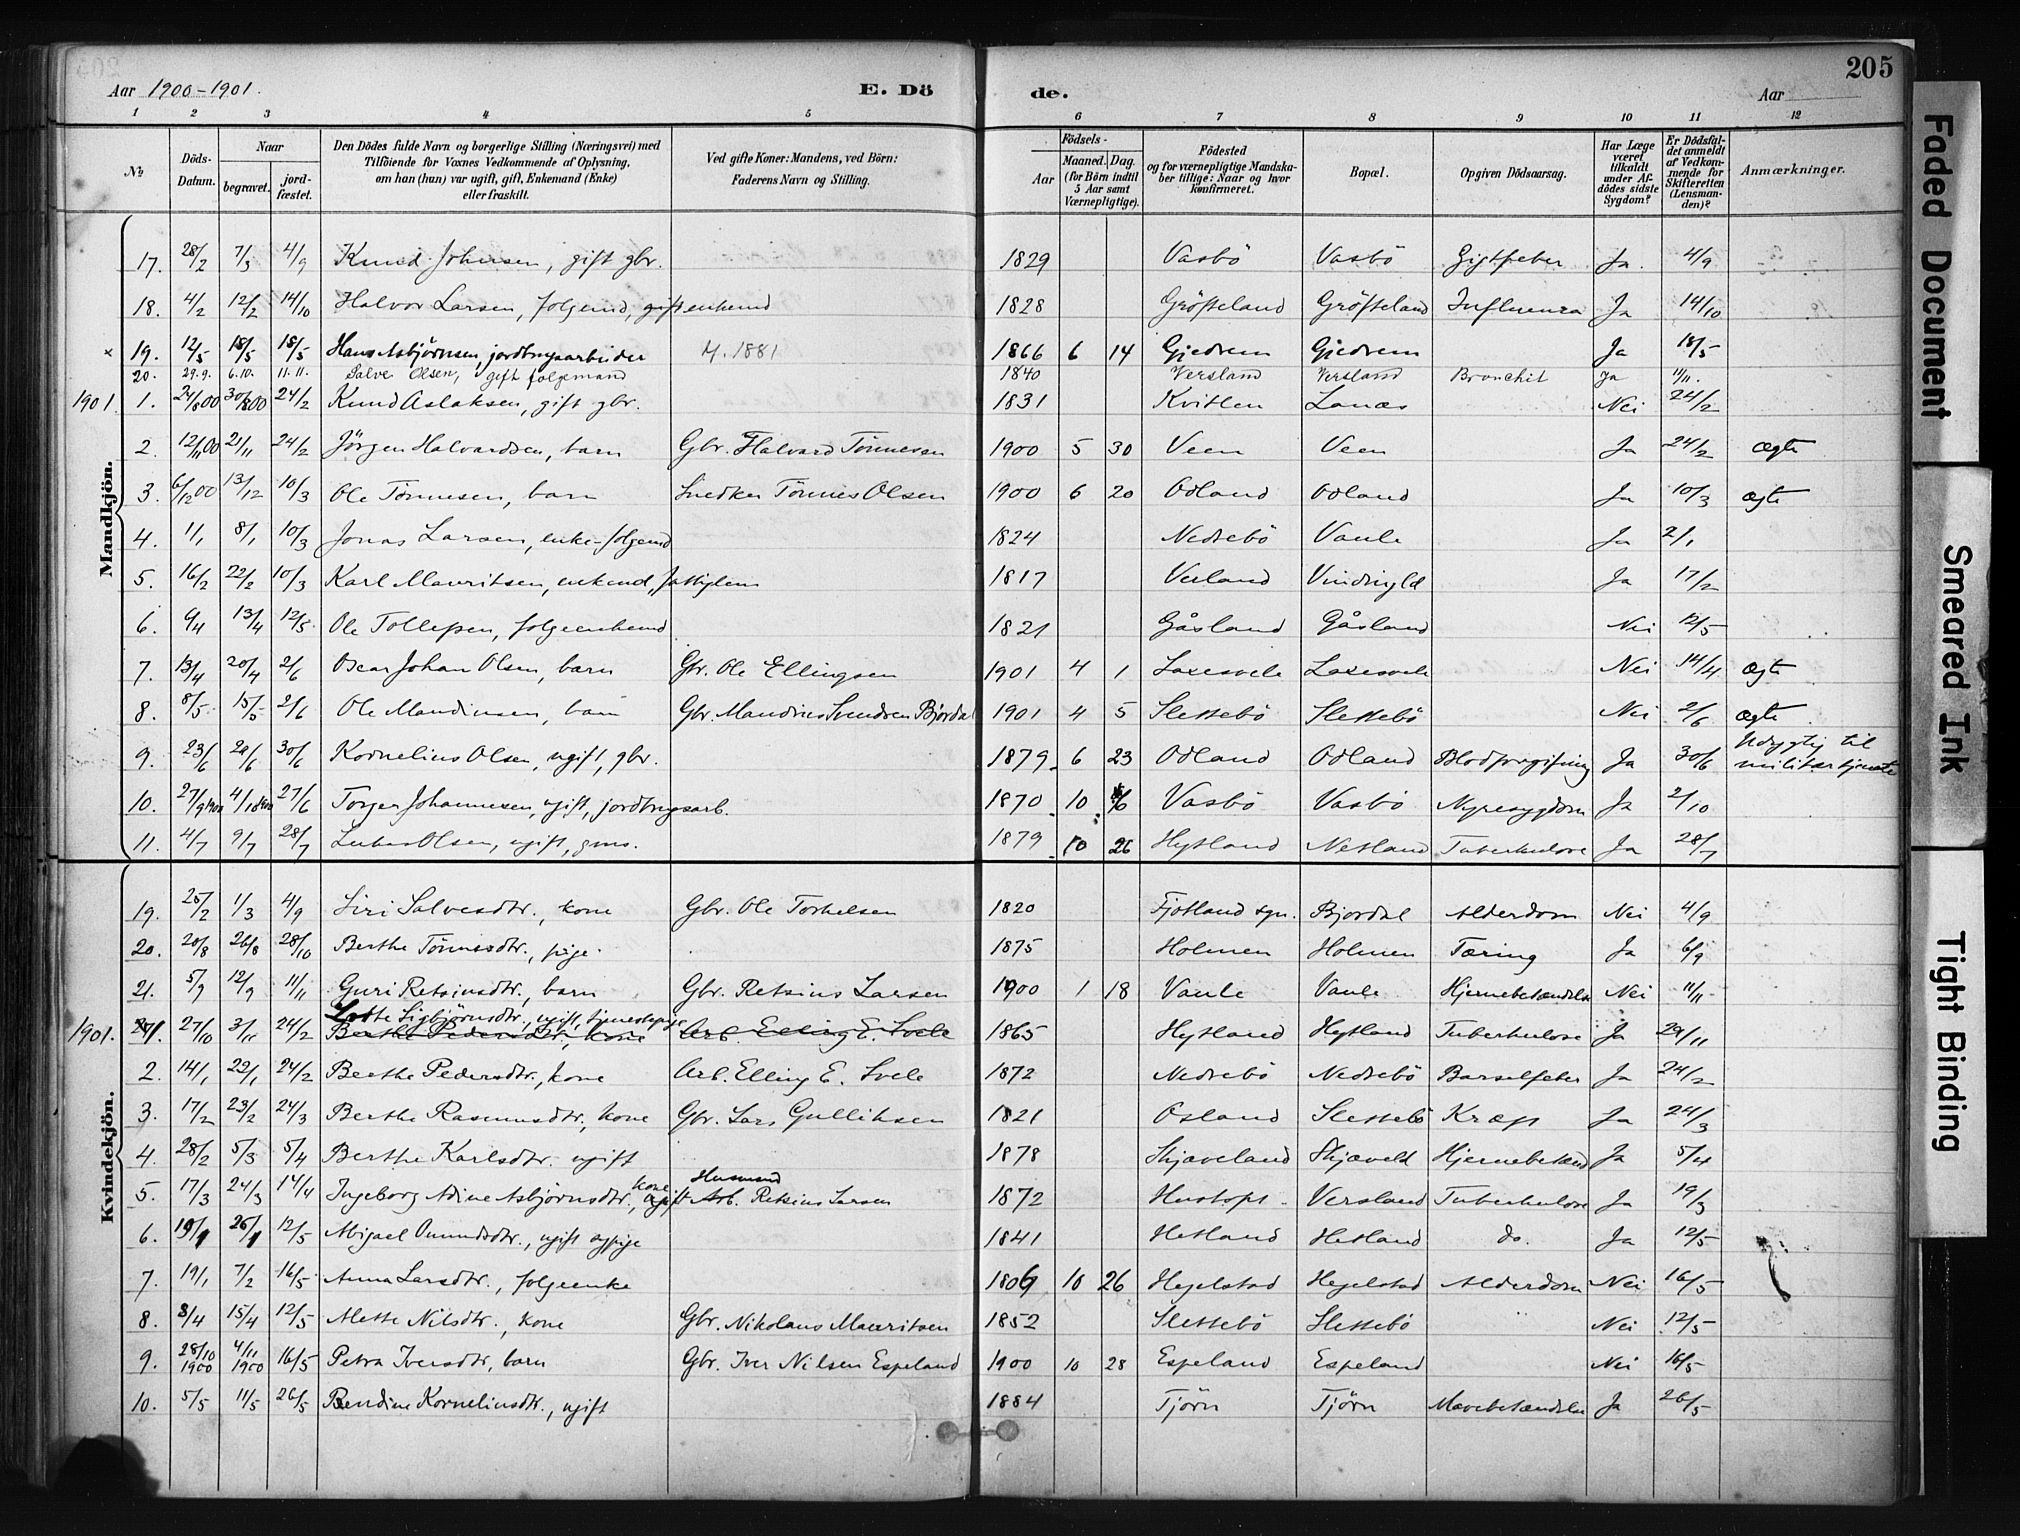 205
Aar 1900-1901.
E. Dö
de.
Aar
1 2 3 4 5 6 7 8 9 10 11 12
№
Döds-Datum.
Naar
begravet.
jordfæstet.
Den Dödes fulde Navn og borgerlige Stilling (Næringsvei) med
Tilföiende for Voxnes Vedkommende af Oplysning,
om han (hun) var ugift, gift, Enkemand (Enke)
eller fraskilt.
Ved gifte Koner: Mandens, ved Börn:
Faderens Navn og Stilling.
Födsels-
Aar
Maaned.
Dag.
(for Börn indtil
5 Aar samt
Værnepligtige).
Födested
og for værnepligtige Mandskaber tillige: Naar og hvor
konfirmeret.
Bopæl.
Opgiven Dödsaarsag.
Har Læge
været
tilkaldt
under Afdödes sidste
Sygdom?
Er Dödsfaldet anmeldt
af Vedkommende for
Skifteretten
(Lensmanden)?
Anmærkninger.
Mandkjön.
17. 28/2 7/3 4/9 Knud Johnsen, gift gbr. 1829 Vasbö Vasbö Gigtfeber Ja 4/9
18. 4/2 12/2 14/10 Halvor Larsen, folgemd, gift enkemd 1828 Gröfteland Gröfteland Influenza Ja 14/10
× 19. 12/5 18/5 18/5 Hans Asbjørnsen, jordbrugsarbeider 4. 1881 1866 6 14 Gjedrem Gjedrem Ja 18/5
20. 29.9. 6.10. 11.11. Salve Olsen, gift folgemand 1840 Versland Versland Bronchit Ja 11/11.
1901 1. 24/8 00 30/8 00 24/2 Knud Aslaksen, gift gbr. 1831 Kvitlen Lonæs Nei 24/2
2. 12/11 00 21/11 24/2 Jörgen Halvardsen, barn Gbr. Halvard Tönnesen 1900 5 30 Veen Veen Ja 24/2 ægte
3. 6/12 00 13/12 10/3 Ole Tönnesen, barn Snedker Tönnes Olsen 1900 6 20 Odland Odland Ja 10/3 ægte
4. 1/1 8/1 10/3 Jonas Larsen, enke-folgemd 1824 Nedrebö Vaule Ja 2/1
5. 16/2 22/2 10/3 Karl Mauritsen, enkemd, fattiglem 1817 Versland Ja 17/2
6. 9/4 13/4 12/5 Ole Tollefsen, folgeenkemd 1821 Gåsland Gåsland Nei 12/5
7. 13/4 20/4 2/6 Oscar Johan Olsen, barn Gbr. Ole Ellingsen 1901 4 1 Laxesvele Laxesvele Nei 14/4 ægte
8. 8/5 15/5 2/6 Ole Mandiussen, barn Gbr. Mandius Svendsen Bjordal 1901 4 5 Slettebö Slettebö Nei 2/6 ægte
9. 23/6 29/6 30/6 Kornelius Olsen, ugift, gbr. 1879 6 23 Odland Odland Blodforgiftning Ja 30/6 Udygtig til militærtjeneste
10. 27/9 1900 4/10 1900 27/6 Torger Johannesen, ugift, jordbrugsarb. 1870 10 Vasbö Vasbö Nyresygdom Ja 2/10
11. 4/7 9/7 28/7 Olsen, ugift, 1879 10 26 Hytland Netland Tuberkulose Ja 28/7
Kvindekjön.
19. 25/2 1/3 4/9 Siri Salvesdtr., kone Gbr. Ole Torkelsen 1820 Fjotland sgn. Bjordal Alderdom Nei 4/9
20. 20/8 26/8 28/10 Berthe Tönnesdtr., pige 1875 Holmen Holmen Tæring Ja 6/9
21. 5/9 12/9 11/11 Guri Retsiusdtr., barn Gbr. Retsius Larsen 1900 1 18 Vaule Vaule Hjernebetændelse Nei 11/11
Sigbjørnsdtr., ugift, tjenestepige
1901. 1. 27/10 3/11 24/2 Berthe Pedersdtr., kone Arb. Elling E. Svele 1865 Hytland Hytland Tuberkulose Ja 29/11
2. 14/1 22/1 24/2 Berthe Pedersdtr., kone Arb. Elling E. Svele 1872 Nedrebö Nedrebö Barselfeber Ja 24/2
3. 17/2 23/2 24/3 Berthe Rasmusdtr., kone Gbr. Lars Gulliksen 1821 Osland Slettebö Kræft Ja 24/3
4. 28/2 5/3 5/4 Berthe Karlsdtr. ugift 1878 Skjæveland Skjæveld Hjernebetænd Ja 5/4
5. 17/3 24/3 14/4 Ingeborg Adine Asbjørnsdtr., kone ugift Husmand Arb. Retsius Larsen 1872 Hustoft Versland Tuberkulose Ja 19/3
6. 19/1 26/1 12/5 Abigael Omundsdtr., ugift pige 1841 Hetland Hetland do. Ja 12/5
7. 19/1 7/2 16/5 Anna Larsdtr., folgeenke 1806 10 26 Hegelstad Hegelstad Alderdom Nei 16/5
8. 8/4 15/4 12/5 Alette Nilsdtr., kone Gbr. Nikolaus Mauritsen 1852 Slettebö Slettebö Nei 12/5
9. 28/10 1900 4/11 1900 16/5 Petra Iversdtr., barn Gbr. Iver Nilsen Espeland 1900 10 28 Espeland Espeland Nei 16/5
10. 5/5 11/5 26/5 Bendine Korneliusdtr., ugift 1884 Tjörn Tjörn Mavebetændelse Ja 26/5
Faded Document
Smeared Ink
Tight Binding